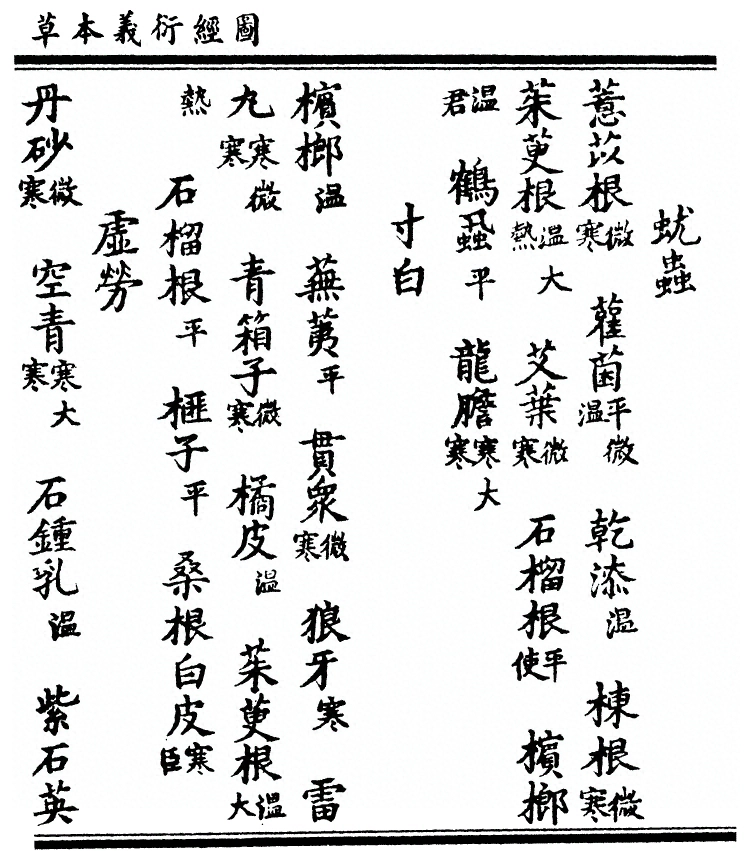 圖經衍義本草
蚘蟲
薏苡根微寒 雚菌平微溫 乾漆溫 楝根微寒
茱萸根溫大熱 艾葉微寒 石榴根平使 檳榔
溫君 鶴蝨平 龍膽寒大寒
寸白
檳榔溫 蕪荑平 貫衆微寒 狼牙寒 雷
丸寒微寒 青箱子微寒 橘皮溫 茱萸根溫大
熱 石榴根平 榧子平 桑根白皮寒臣
虛勞
丹砂微寒 空青寒大寒 石鍾乳溫 紫石英